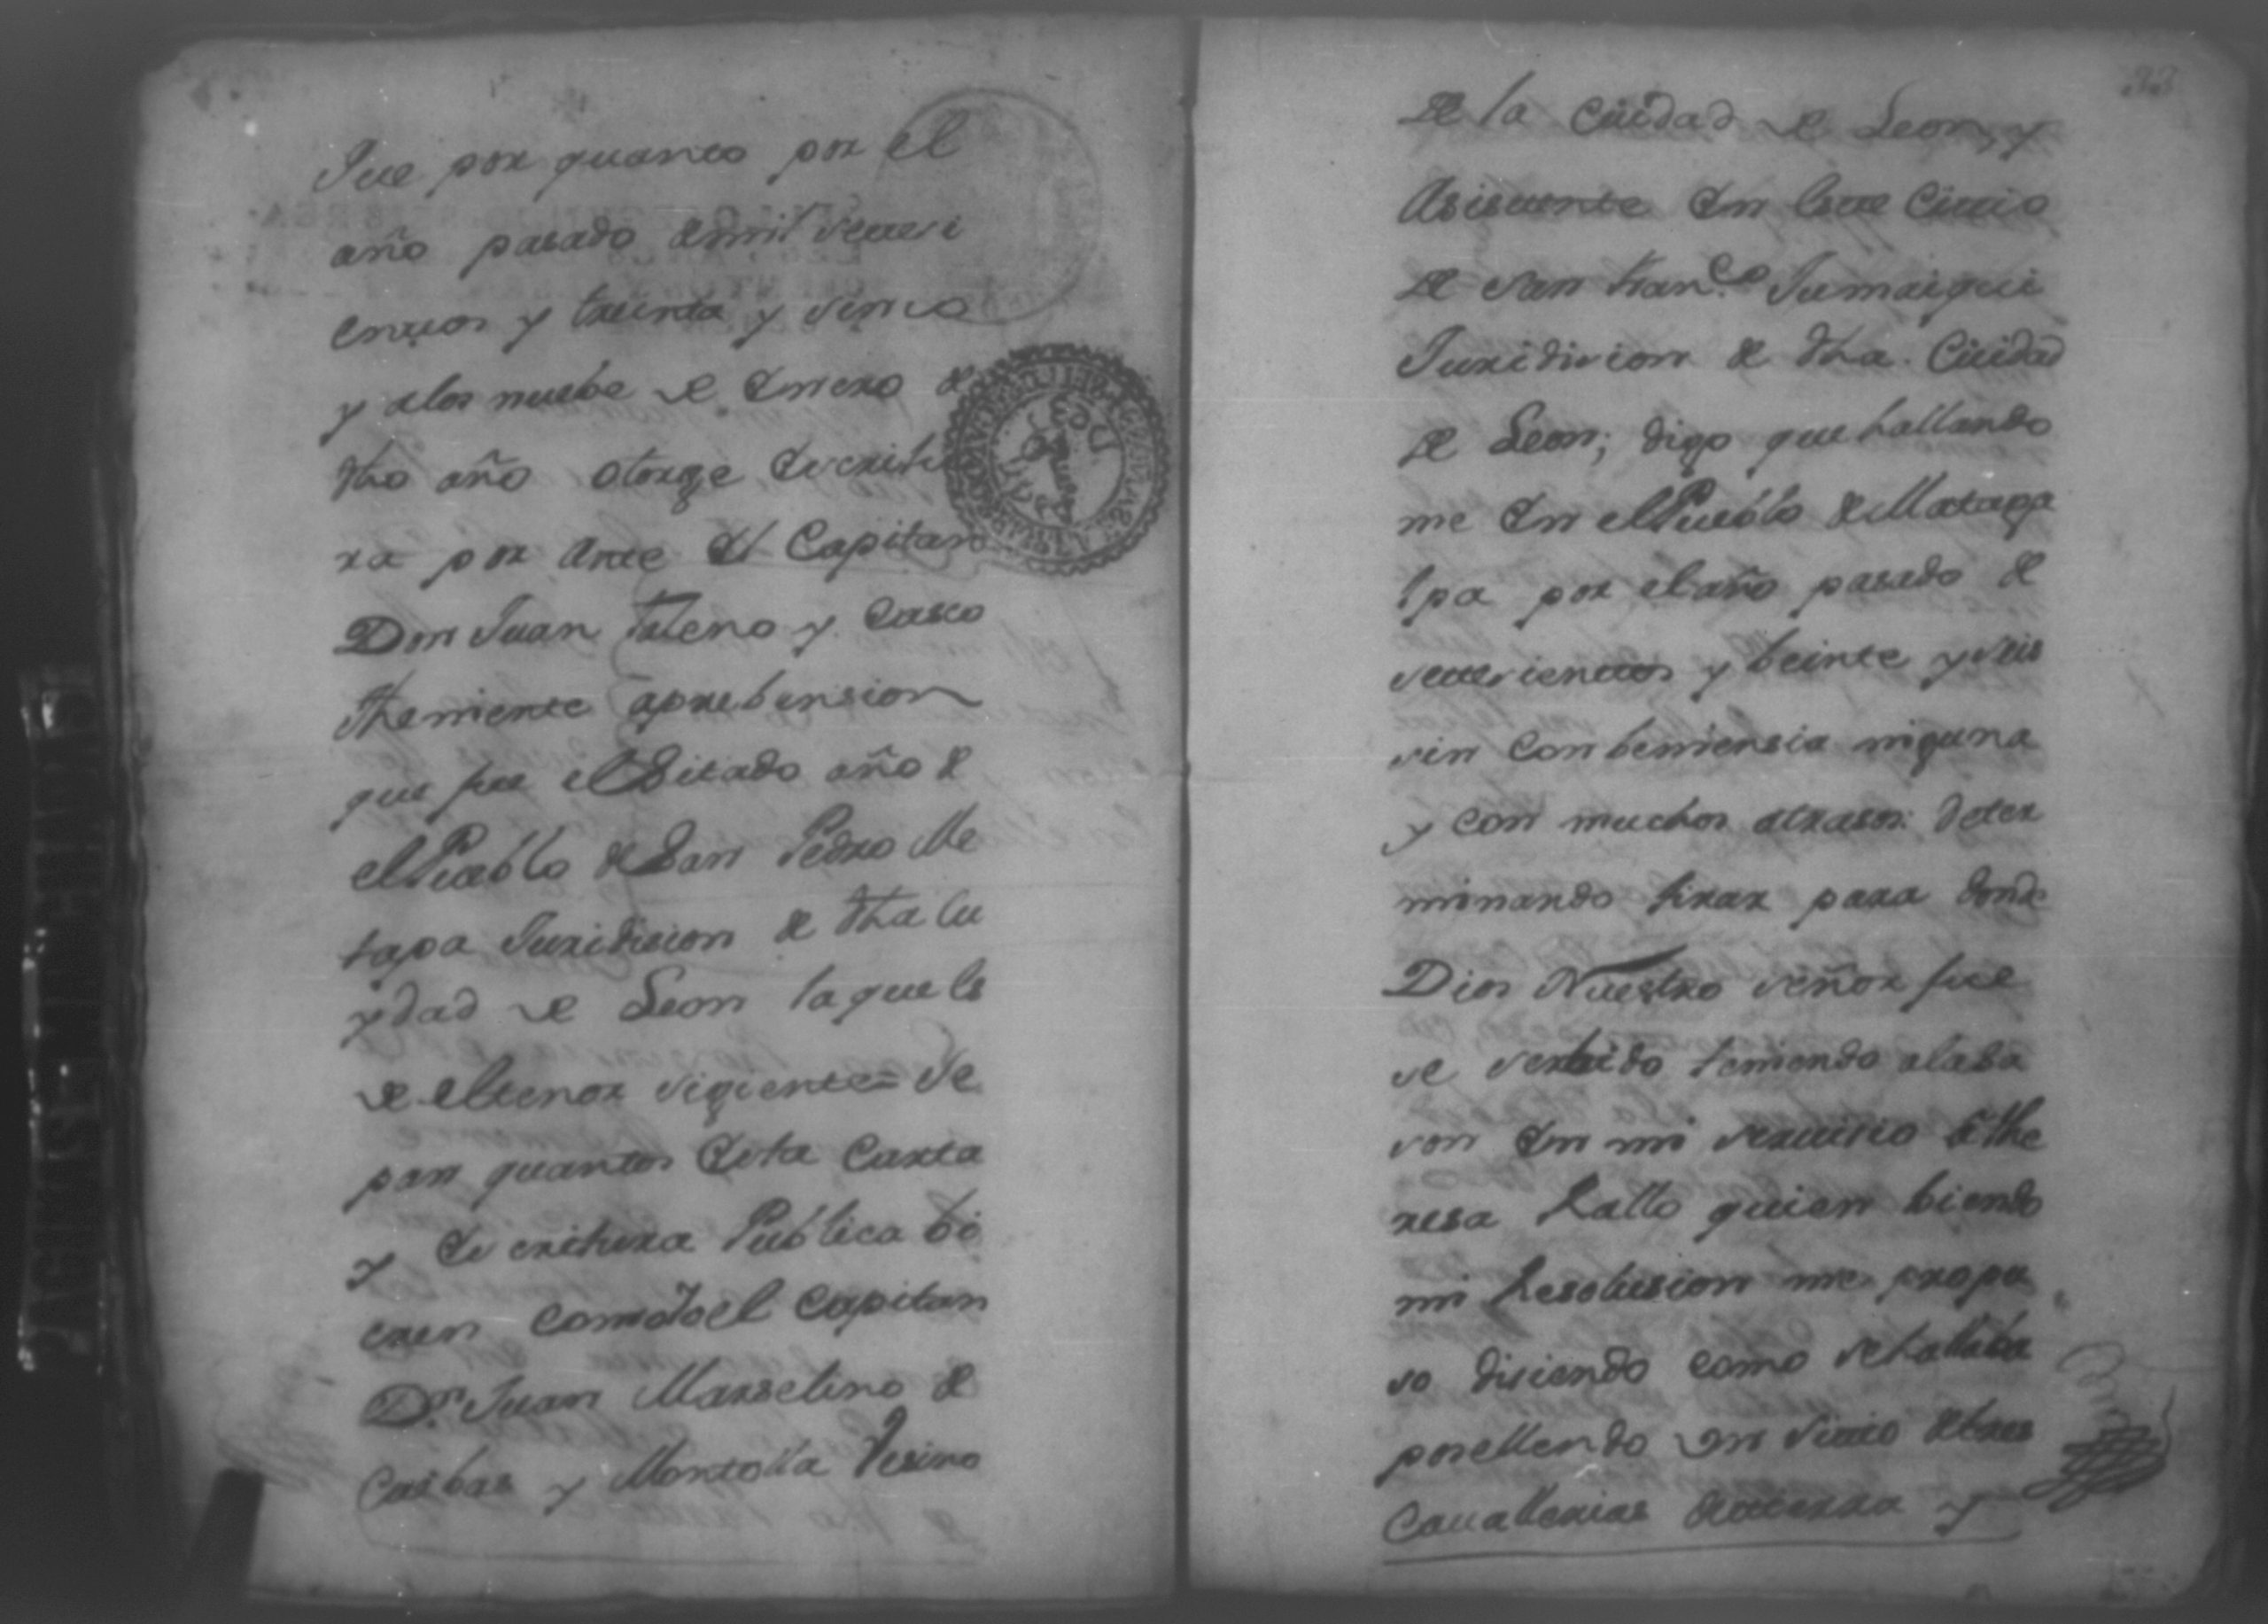 Que por quanto por el
año pasado de mil setesi
entos y treinta y sinco
y a los nuebe de Enero de
dho año otorge Escritu
ra por Ante el Capitan
Don Juan y Casco
Theniente aprebension
que fue el Sitado año de
el Pueblo de San Pedro Me
tapa Juridision de dha Ciu
ydad de Leon la que es
de el tenor sigiente = Se
pan quantos Esta Carta
y Escritura Publica bi
eren como Yo el Capitan
Dn Juan Marselino de
Casbas y Montolla Vesino
33
de la Ciudad de Leon, y
Asistente En Este Citio
de San Franco
Juridision de dha Ciudad
de Leon; digo que hallando
me En el Pueblo de Mataga
lpa por el año pasado de
setesientos y beinte y seis
sin Conbeniensia niguna
y con muchos atrasos: deter
minando tirar para donde
Dios Nuestro señor fue
se serbido teniendo a la sa
son En mi serbisio a The
resa quien biendo
mi Resolusion me propu
so disiendo como se hallaba
posellendo un Sitio de tres
Cauallerias de tierra y